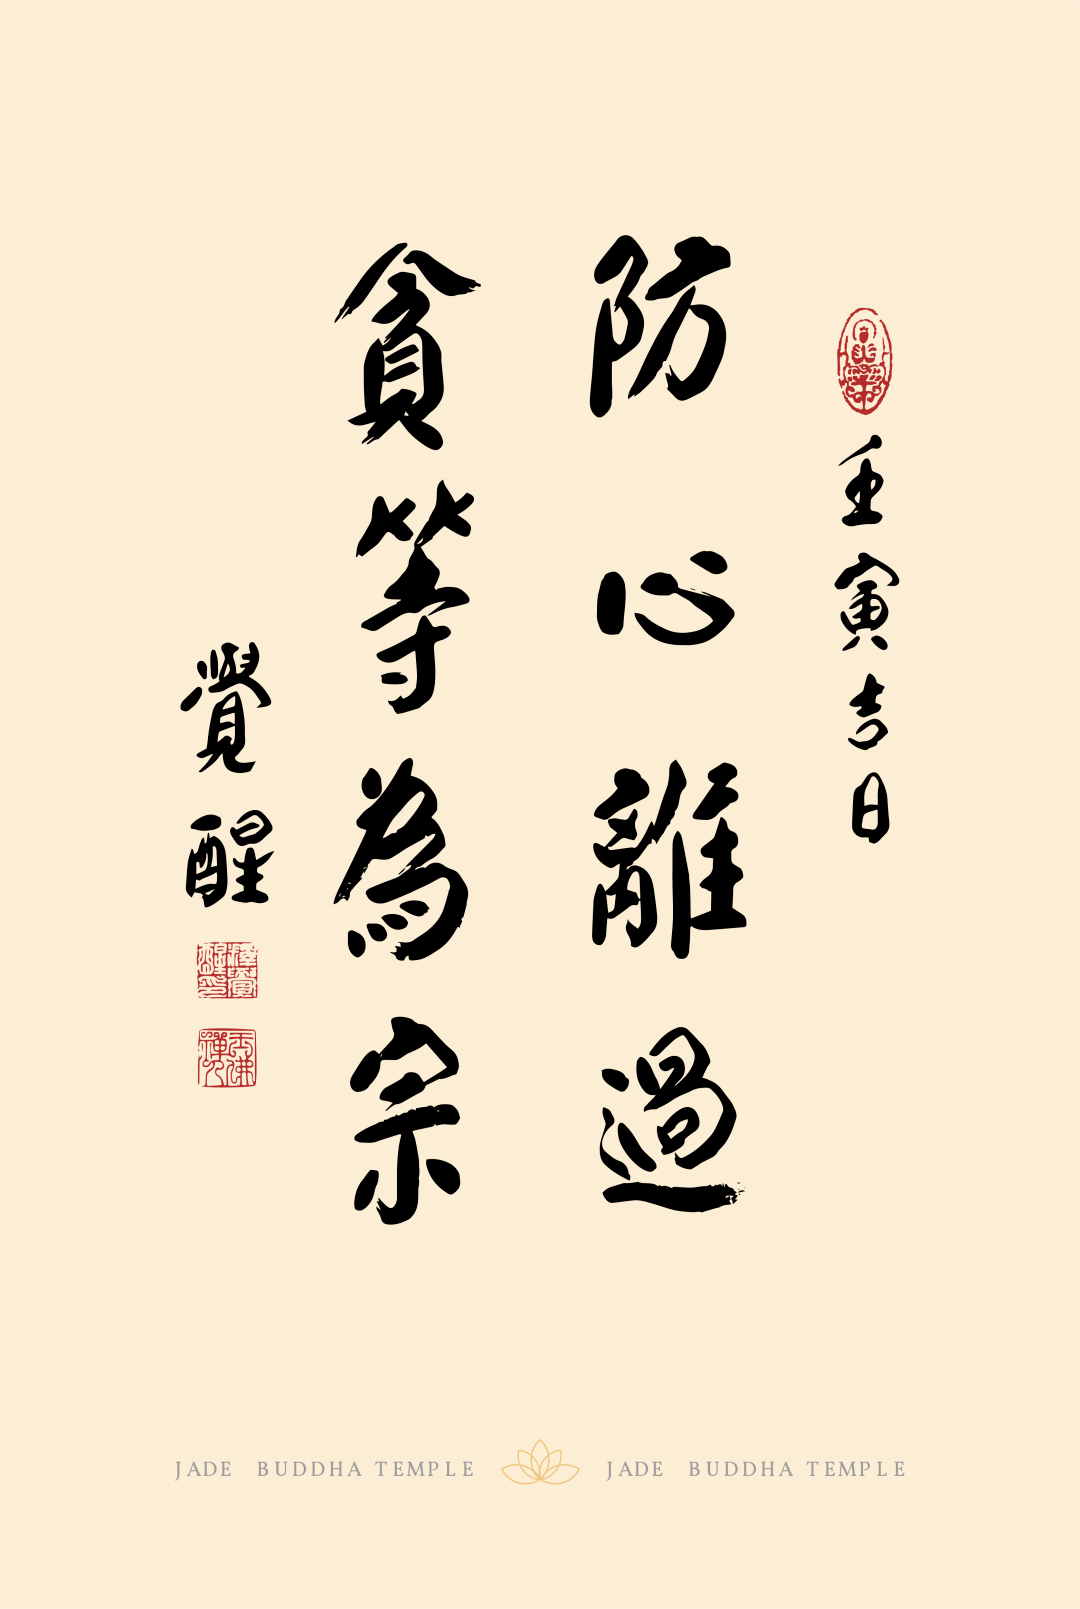 壬寅吉日
防心離過
貪等為宗
覺醒
JADE BUDDHA TEMPLE JADE BUDDHA TEMPLE